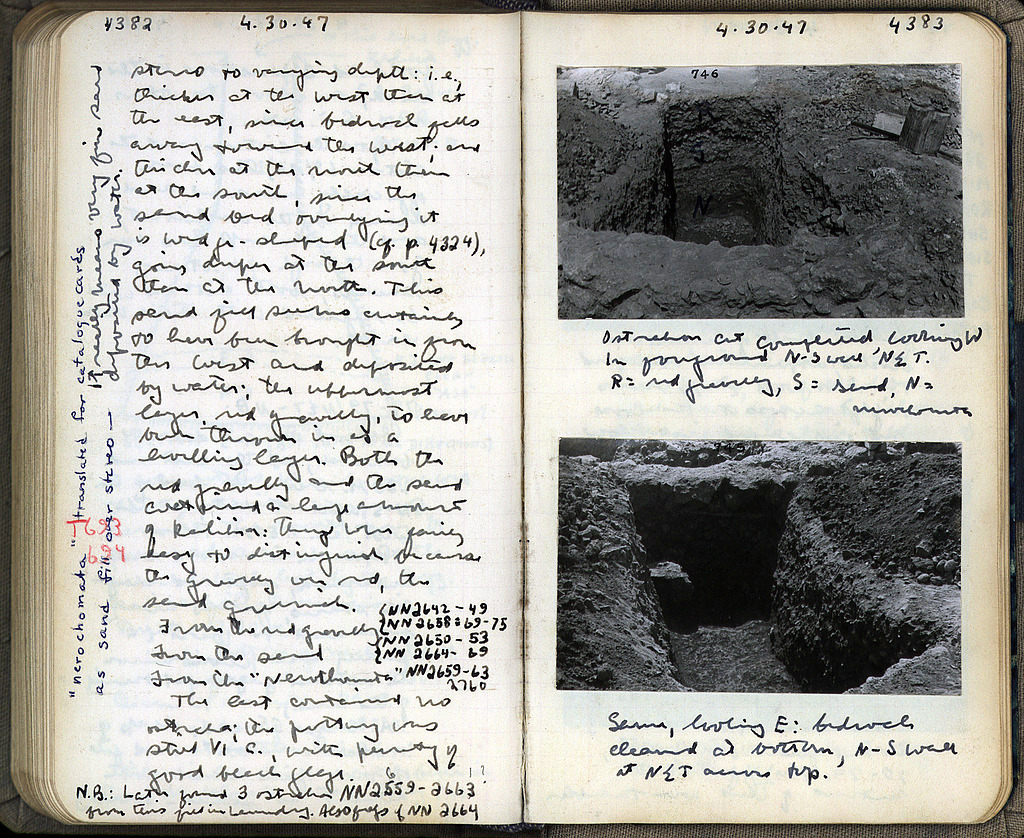 4382 4.30.47
stereo to varying depth: i.e.,
thicker at the west than at
the east, since bedrock falls
away toward the west; and
thicker at the north than
at the south, since the
sand bed overlying it
is wedge-shaped (cf. p. 4324),
going deeper at the south
than at the north. This
sand fill seems certainly
to have been brought in from
the west and deposited
by water; the uppermost
layer, red gravelly, to have
been thrown in as a
levelling layer. Both the
red gravelly and the sand
contained a large amount
of : they were fairly
easy to distinguish because
the gravelly was red, the
sand greenish.
From the red gravelly {NN2642-49
{NN2658:69-75
From the sand {NN2650-53
{NN2664-
From the "Nerochomata" NN2659-63
2760
The last contained no
ostraka; the pottery was
still VI C., with plenty of
good black glaze.
N.B.: Later found 3 ostraka NN2659-2663
from this fill in laundry. Also frags of NN 2664
"nerochomata" translated for catalogue cards
as sand fill over stereo —
It really means very fine sand
deposited by water.
T683
684
4.30.47 4383
746
R
S
N
Ostrakon cut completed, looking W
In foreground N-S wall, N≤T.
R = red gravelly, S = sand, N =
nerochomata
Same, looking E: bedrock
cleaned at bottom, N-S wall
at N≤T across top.